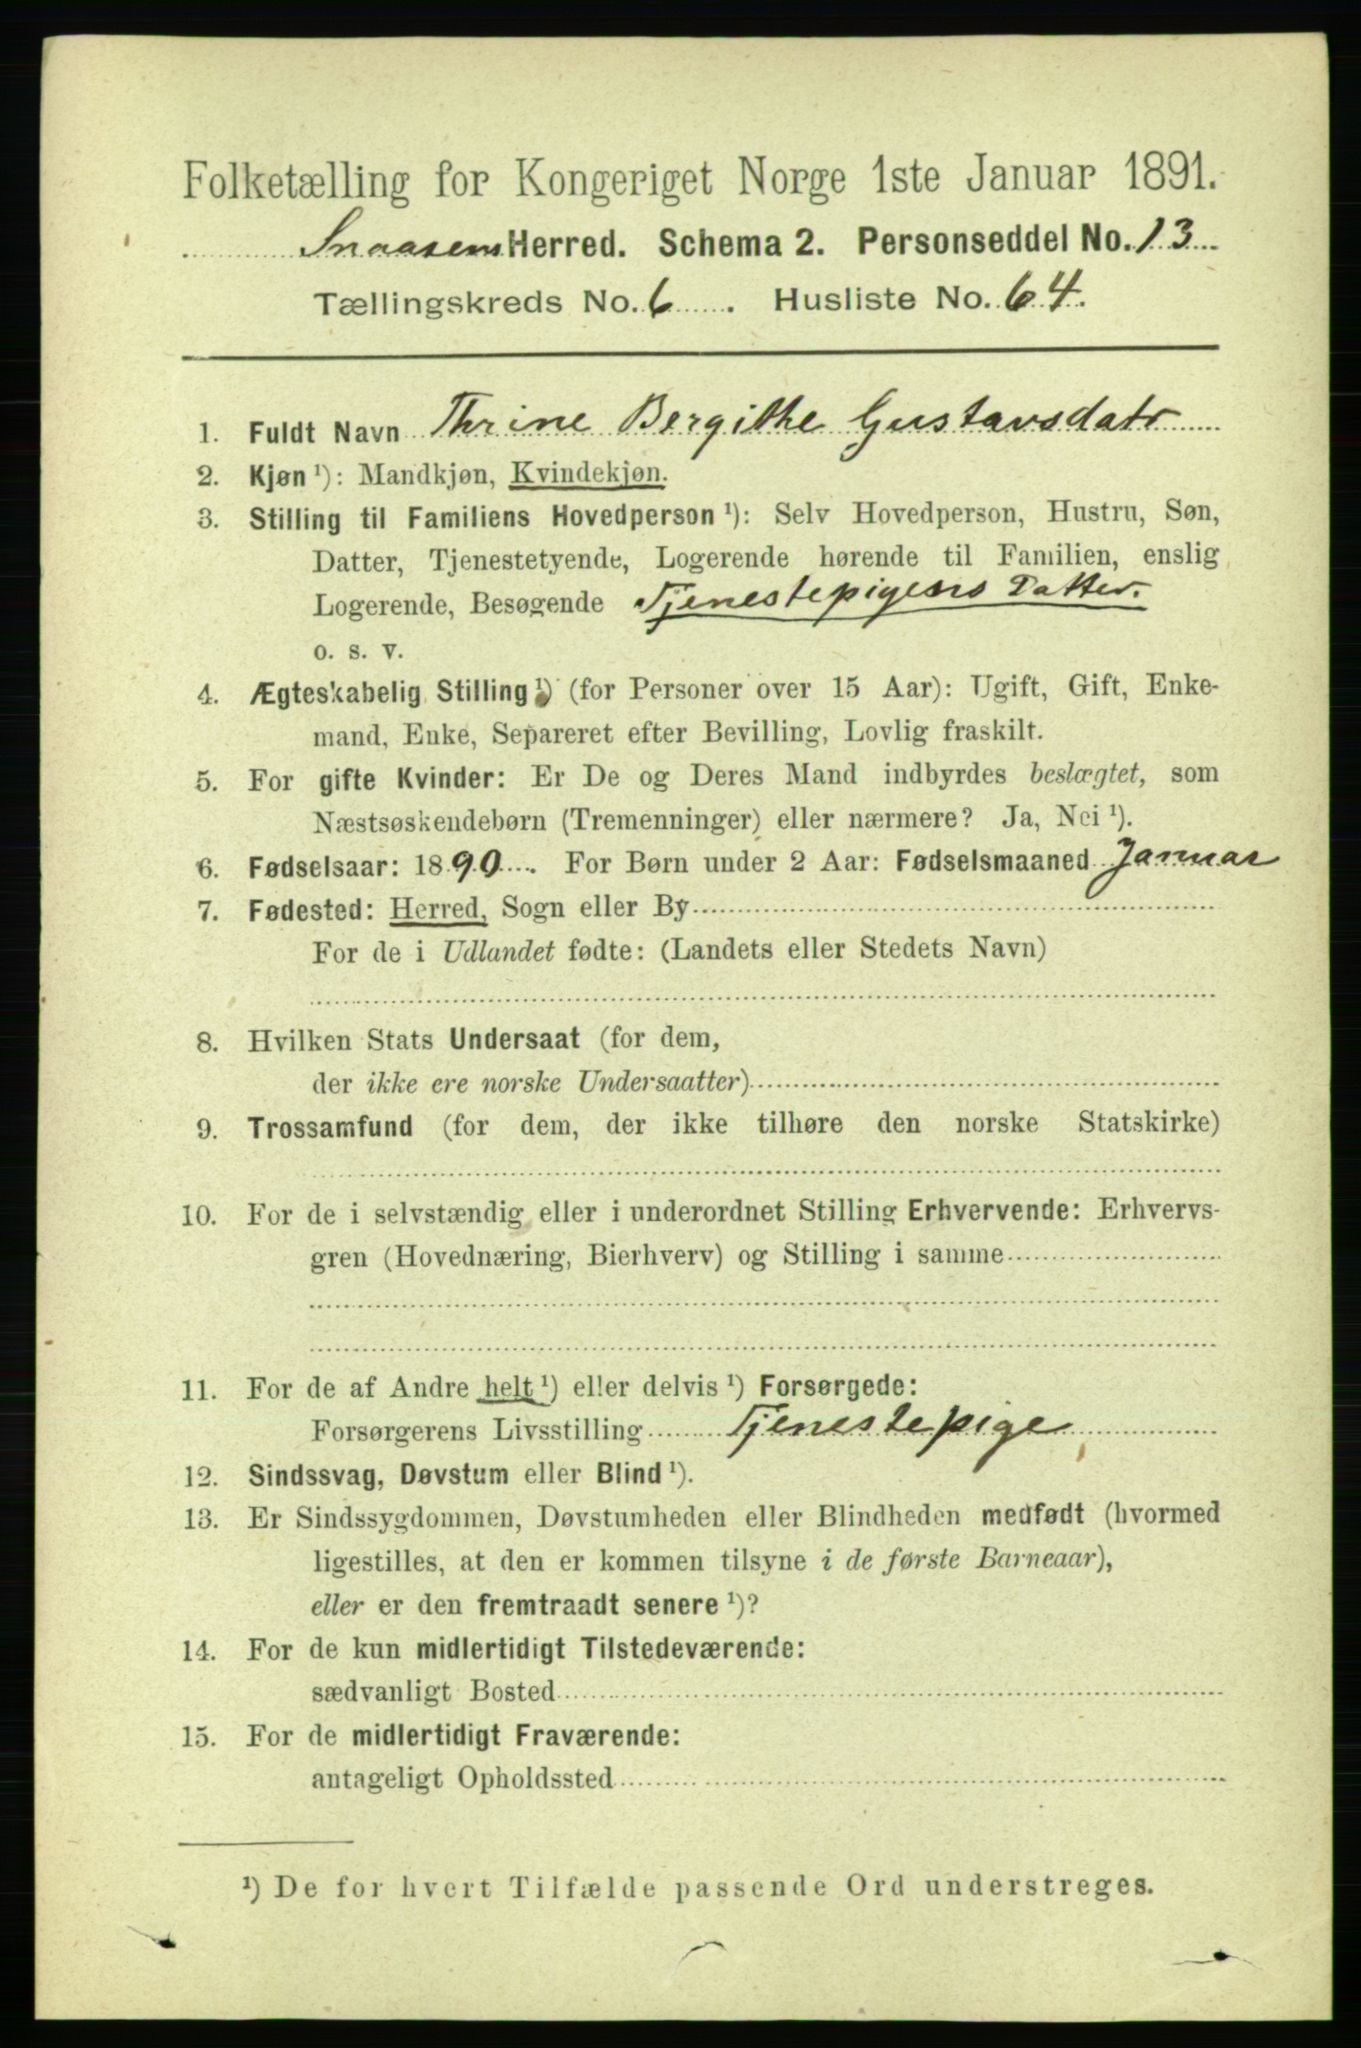 Folketælling for Kongeriget Norge 1ste Januar 1891.
Snaasens Herred. Schema 2. Personseddel No. 13
Tællingskreds No. 6. Husliste No. 64.
1. Fuldt Navn Thrine Bergithe Gustavsdatr
2. Kjøn ¹): Mandkjøn, Kvindekjøn.
3. Stilling til Familiens Hovedperson ¹): Selv Hovedperson, Hustru, Søn,
Datter, Tjenestetyende, Logerende hørende til Familien, enslig
Logerende, Besøgende Tjenestepigens Datter.
o. s. v.
4. Ægteskabelig Stilling ¹) (for Personer over 15 Aar): Ugift, Gift, Enke-
mand, Enke, Separeret efter Bevilling, Lovlig fraskilt.
5. For gifte Kvinder: Er De og Deres Mand indbyrdes beslægtet, som
Næstsøskendebørn (Tremenninger) eller nærmere? Ja, Nei ¹).
6. Fødselsaar: 1890. For Børn under 2 Aar: Fødselsmaaned Januar
7. Fødested: Herred, Sogn eller By
For de i Udlandet fødte: (Landets eller Stedets Navn)
8. Hvilken Stats Undersaat (for dem,
der ikke ere norske Undersaatter)
9. Trossamfund (for dem, der ikke tilhøre den norske Statskirke)
10. For de i selvstændig eller i underordnet Stilling Erhvervende: Erhvervs-
gren (Hovednæring, Bierhverv) og Stilling i samme
11. For de af Andre helt ¹) eller delvis ¹) Forsørgede:
Forsørgerens Livsstilling Tjenestepige
12. Sindssvag, Døvstum eller Blind ¹).
13. Er Sindssygdommen, Døvstumheden eller Blindheden medfødt (hvormed
ligestilles, at den er kommen tilsyne i de første Barneaar),
eller er den fremtraadt senere ¹)?
14. For de kun midlertidigt Tilstedeværende:
sædvanligt Bosted
15. For de midlertidigt Fraværende:
antageligt Opholdssted
¹) De for hvert Tilfælde passende Ord understreges.